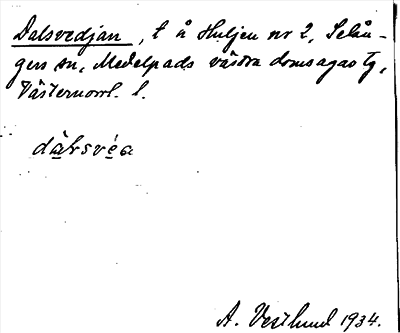 Dalsvedjan, t å Huljen nr 2, Selån-
gers sn, Medelpads västra domsagas tg,
Västernorrl. l.
dàlsvéa
A. Vestlund 1934.